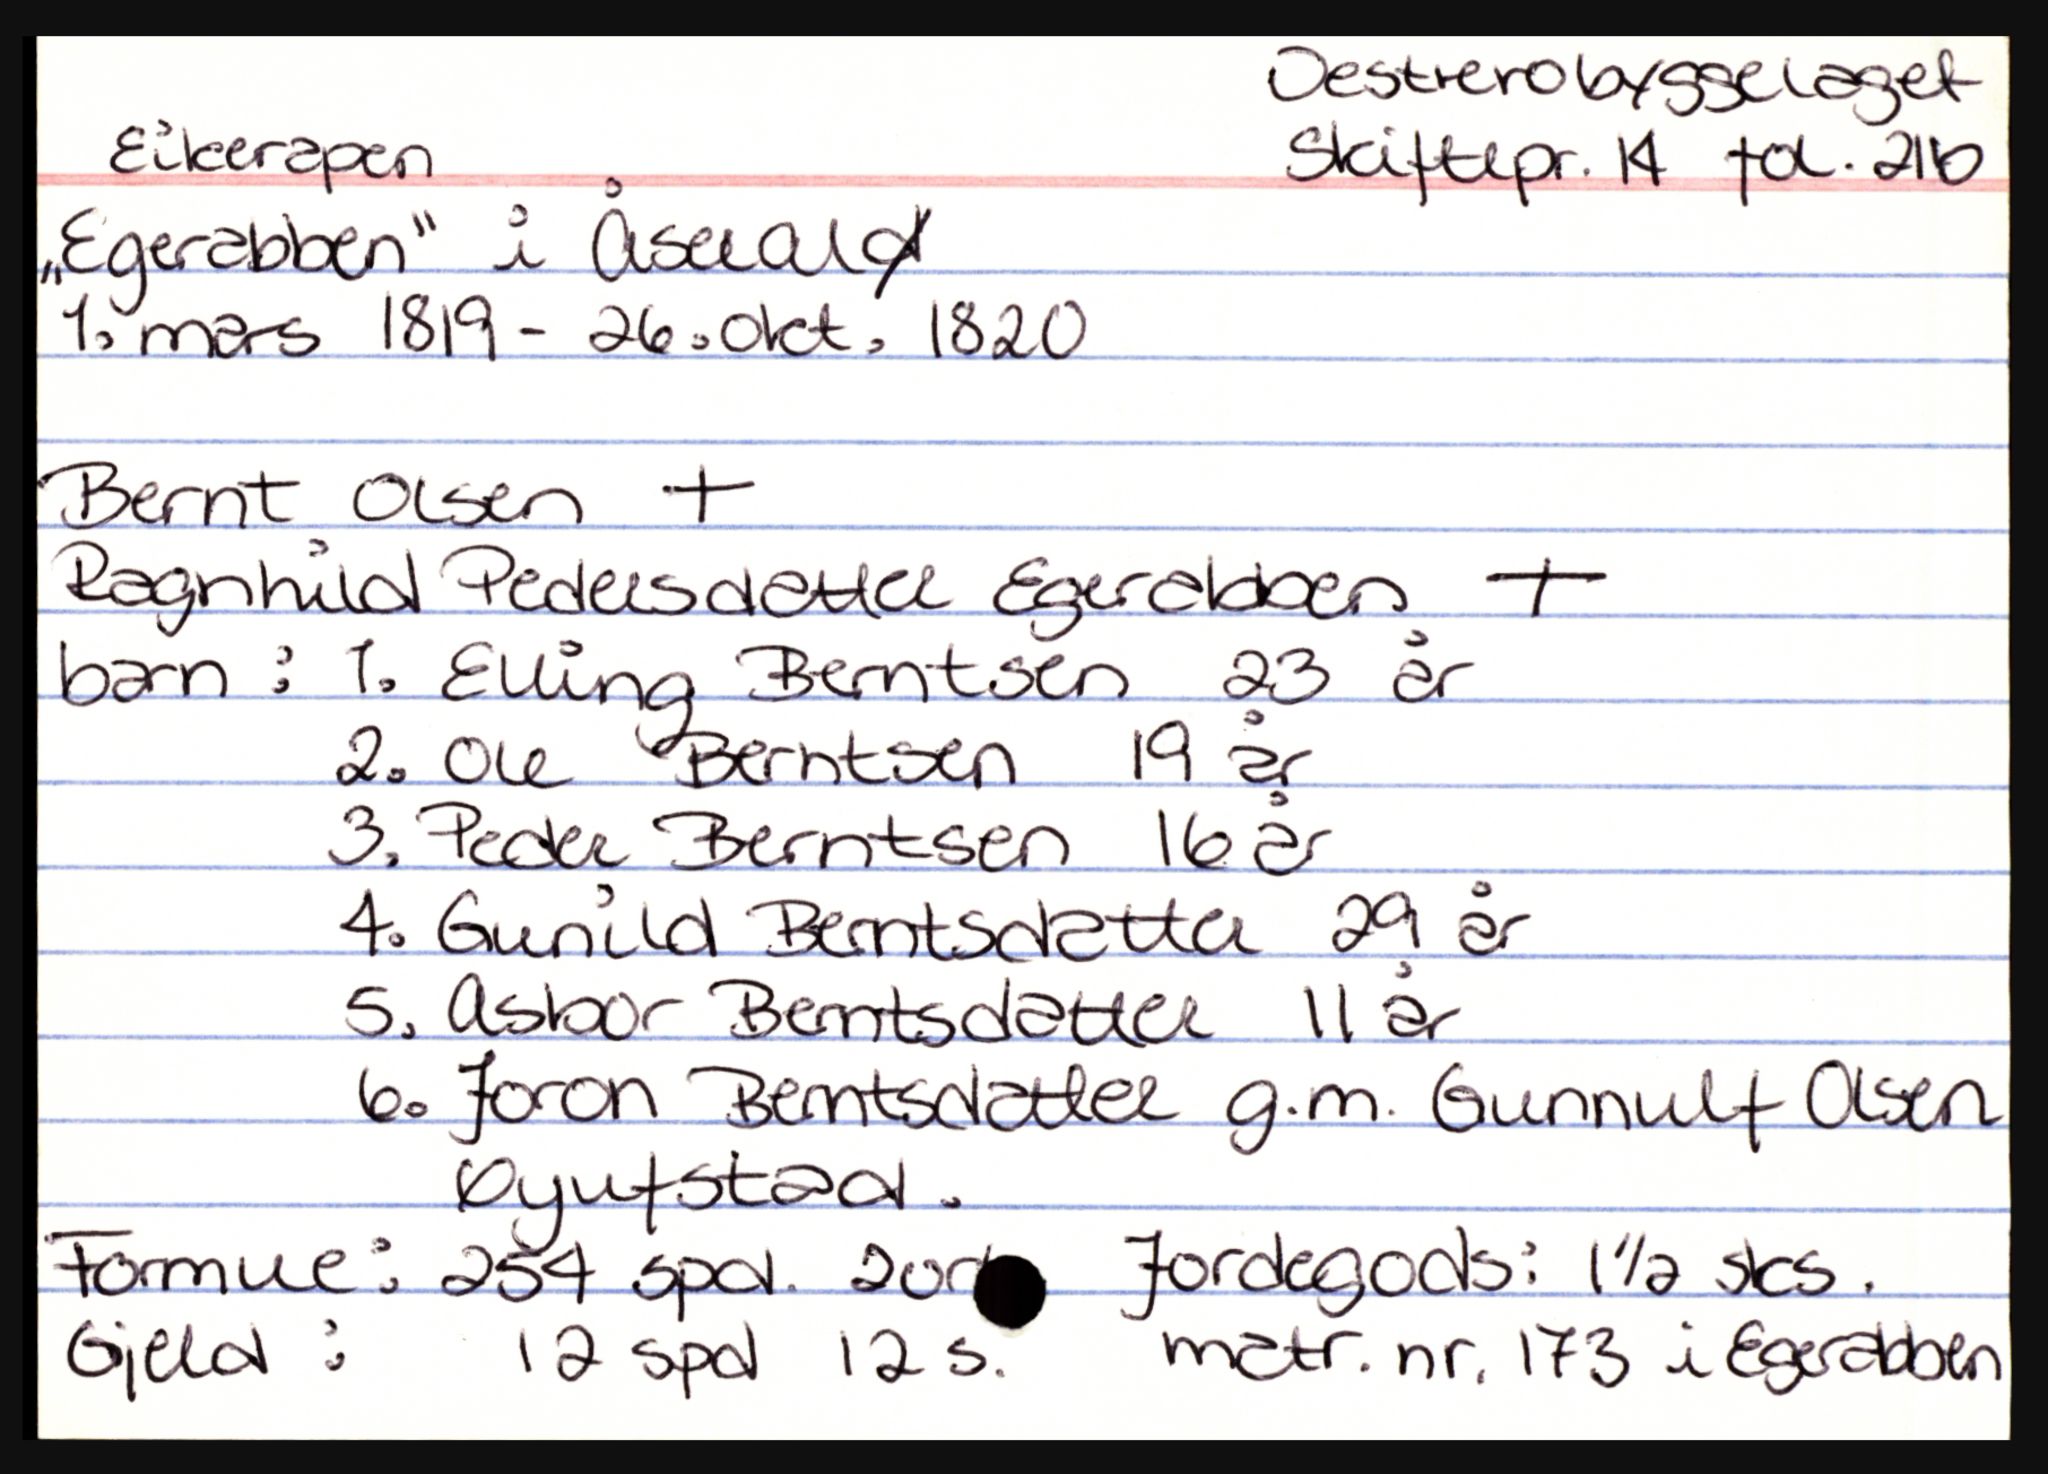 Oestrerobyggelaget
Eikerapen Skiftepr. 14 fol. 21b
„Egerabben“ i Åseral
1. mars 1819 - 26. okt. 1820
Bernt Olsen +
Ragnhild Pedersdatter Egerabben +
barn : 1. Elling Berntsen 23 år
2. Ole Berntsen 19 år
3. Peder Berntsen 16 år
4. Gunild Berntsdatter 29 år
5. Asbor Berntsdatter 11 år
6. Joron Berntsdatter g.m. Gunnulf Olsen
Øyufstad.
Formue : 254 spd. 2 ort Jordegods : 1 1/2 sks.
Gjeld : 12 spd 12 s. matr. nr. 173 i Egerabben